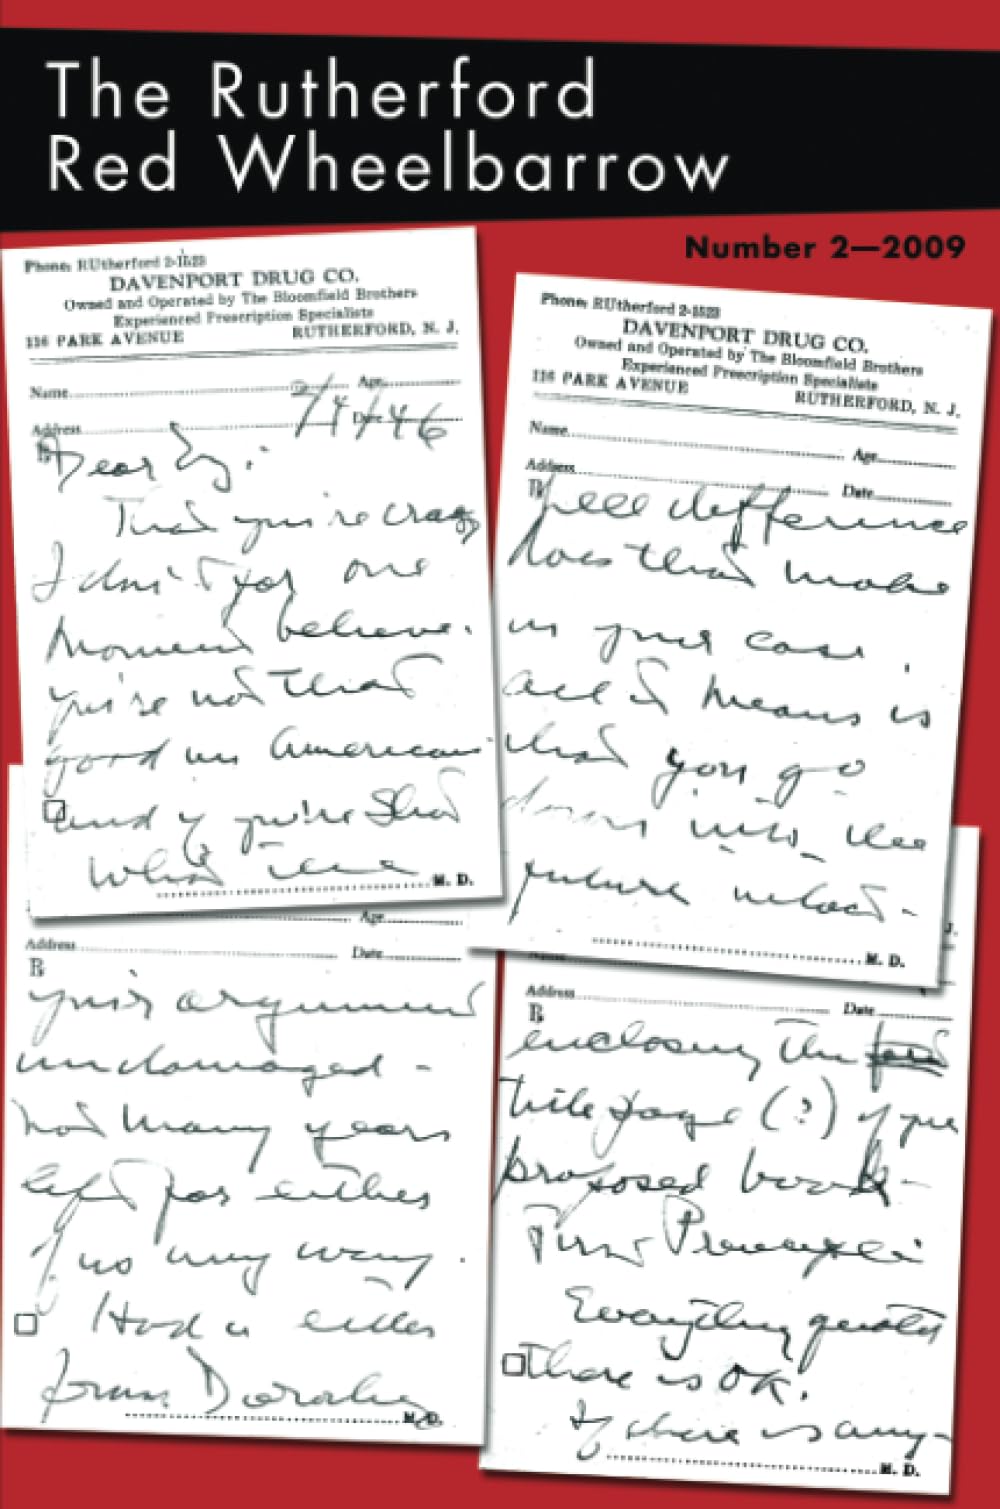 The Rutherford
Red Wheelbarrow
Number 2—2009
Phone: RUtherford 2-1523
DAVENPORT DRUG CO.
Owned and Operated by The Bloomfield Brothers
Experienced Prescription Specialists
116 PARK AVENUE RUTHERFORD, N. J.
Name Age
Address Date
2/4/46
Dear Ez:
That you're crazy
I don't for one
moment believe.
you're not that
good an American
and if you're shot
What the
M. D.
Phone: RUtherford 2-1523
DAVENPORT DRUG CO.
Owned and Operated by The Bloomfield Brothers
Experienced Prescription Specialists
116 PARK AVENUE RUTHERFORD, N. J.
Name Age
Address Date
℞
hell difference
does that make
in your case.
all it means is
that you go
down into the
future intact-
M. D.
Age
Address Date
℞
your argument
undamaged -
not many years
left for either
of us any way.
Had a letter
from Dorothy
M. D.
J.
Name
Address Date
℞
enclosing the
title page (?) of your
proposed book-
First
Everything quoted
there is OK.
If there is any-
M. D.